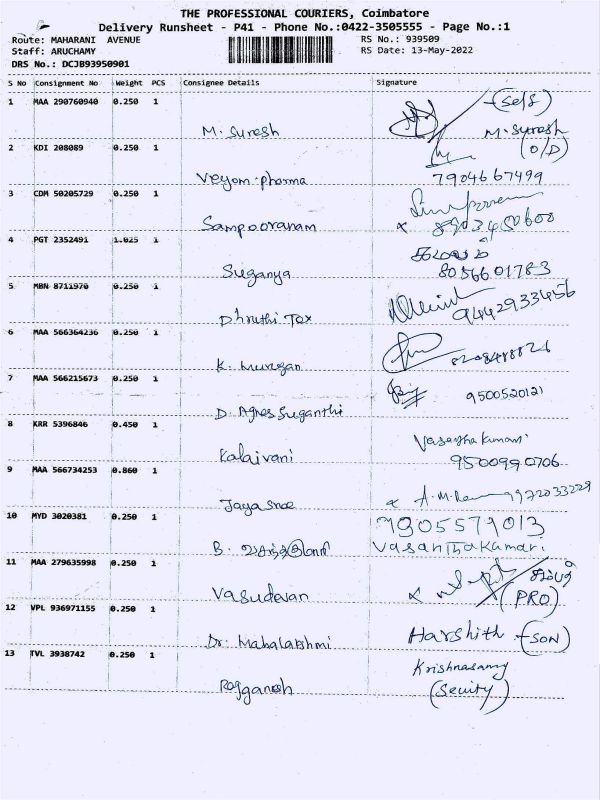 THE PROFESSIONAL COURIERS, Coimbatore
Delivery Runsheet - P41 - Phone No.:0422-3505555 - Page No.:1
Route: MAHARANI AVENUE RS No.: 939509
Staff: ARUCHAMY RS Date: 13-May-2022
DRS No.: DCJB93950901
S No Consignment No Weight PCS Consignee Details Signature
1 MAA 290760940 0.250 1 (Self)
M. Suresh M. Suresh
2 KDI 208089 0.250 1 (O/D)
Veyom pharma 7904667499
3 CDM 50205729 0.250 1
Sampooranam x 8903450600
4 PGT 2352491 1.025 1
Suganya 8056601783
5 MBN 8711970 0.250 1
Dhruthi Tex 9442933456
6 MAA 566364236 0.250 1
K. Murugan
7 MAA 566215673 0.250 1
D. Agnes Suganthi 9500520121
8 KRR 5396846 0.450 1 Vasantha kumari
Kalaivani 9500990706
9 MAA 566734253 0.860 1
Jayasree x A.M.
10 MYD 3020381 0.250 1 7305579013
B. வசந்தகுமாரி VasanthaKumari
11 MAA 279635998 0.250 1
Vasudevan x (PRO)
12 VPL 936971155 0.250 1
Dr. Mahalakshmi Harshith (SON)
13 TVL 3938742 0.250 1 Krishnasamy
Rajganesh (Seuity)